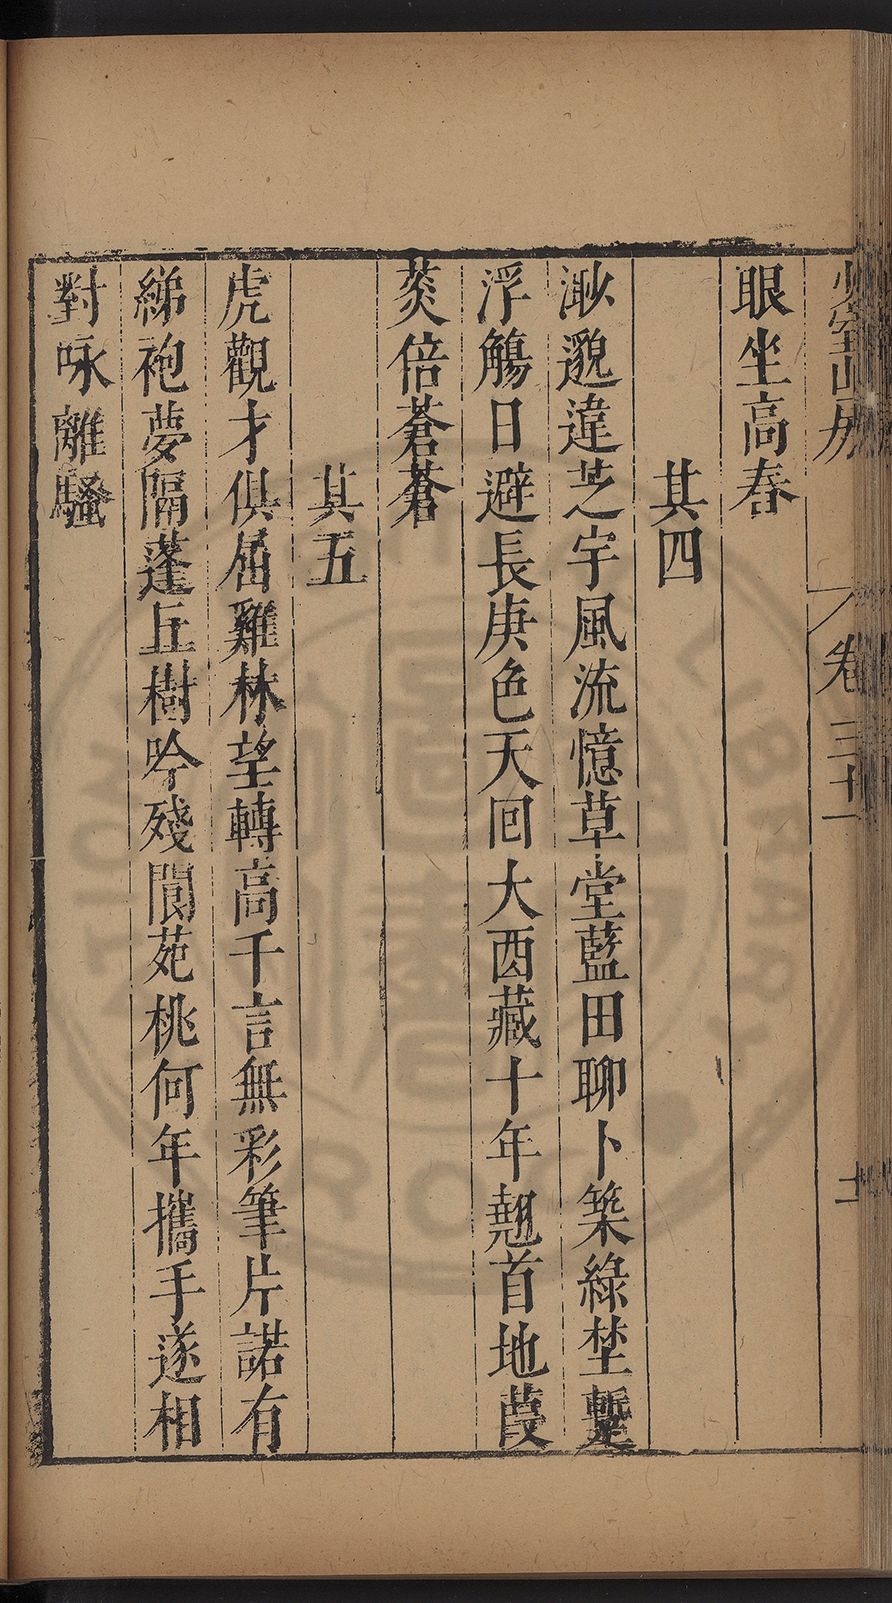 少室山房 卷三十 十一
眼坐高舂
其四
渺邈違芝宇風流憶草堂藍田聊卜築綠埜蹔
浮觴日避長庚色天回大酉藏十年翹首地葭
菼倍蒼蒼
其五
虎觀才俱屈雞林望轉高千言無彩筆片諾有
綈袍夢隔蓬丘樹吟殘閬苑桃何年攜手遂相
對咏離騷